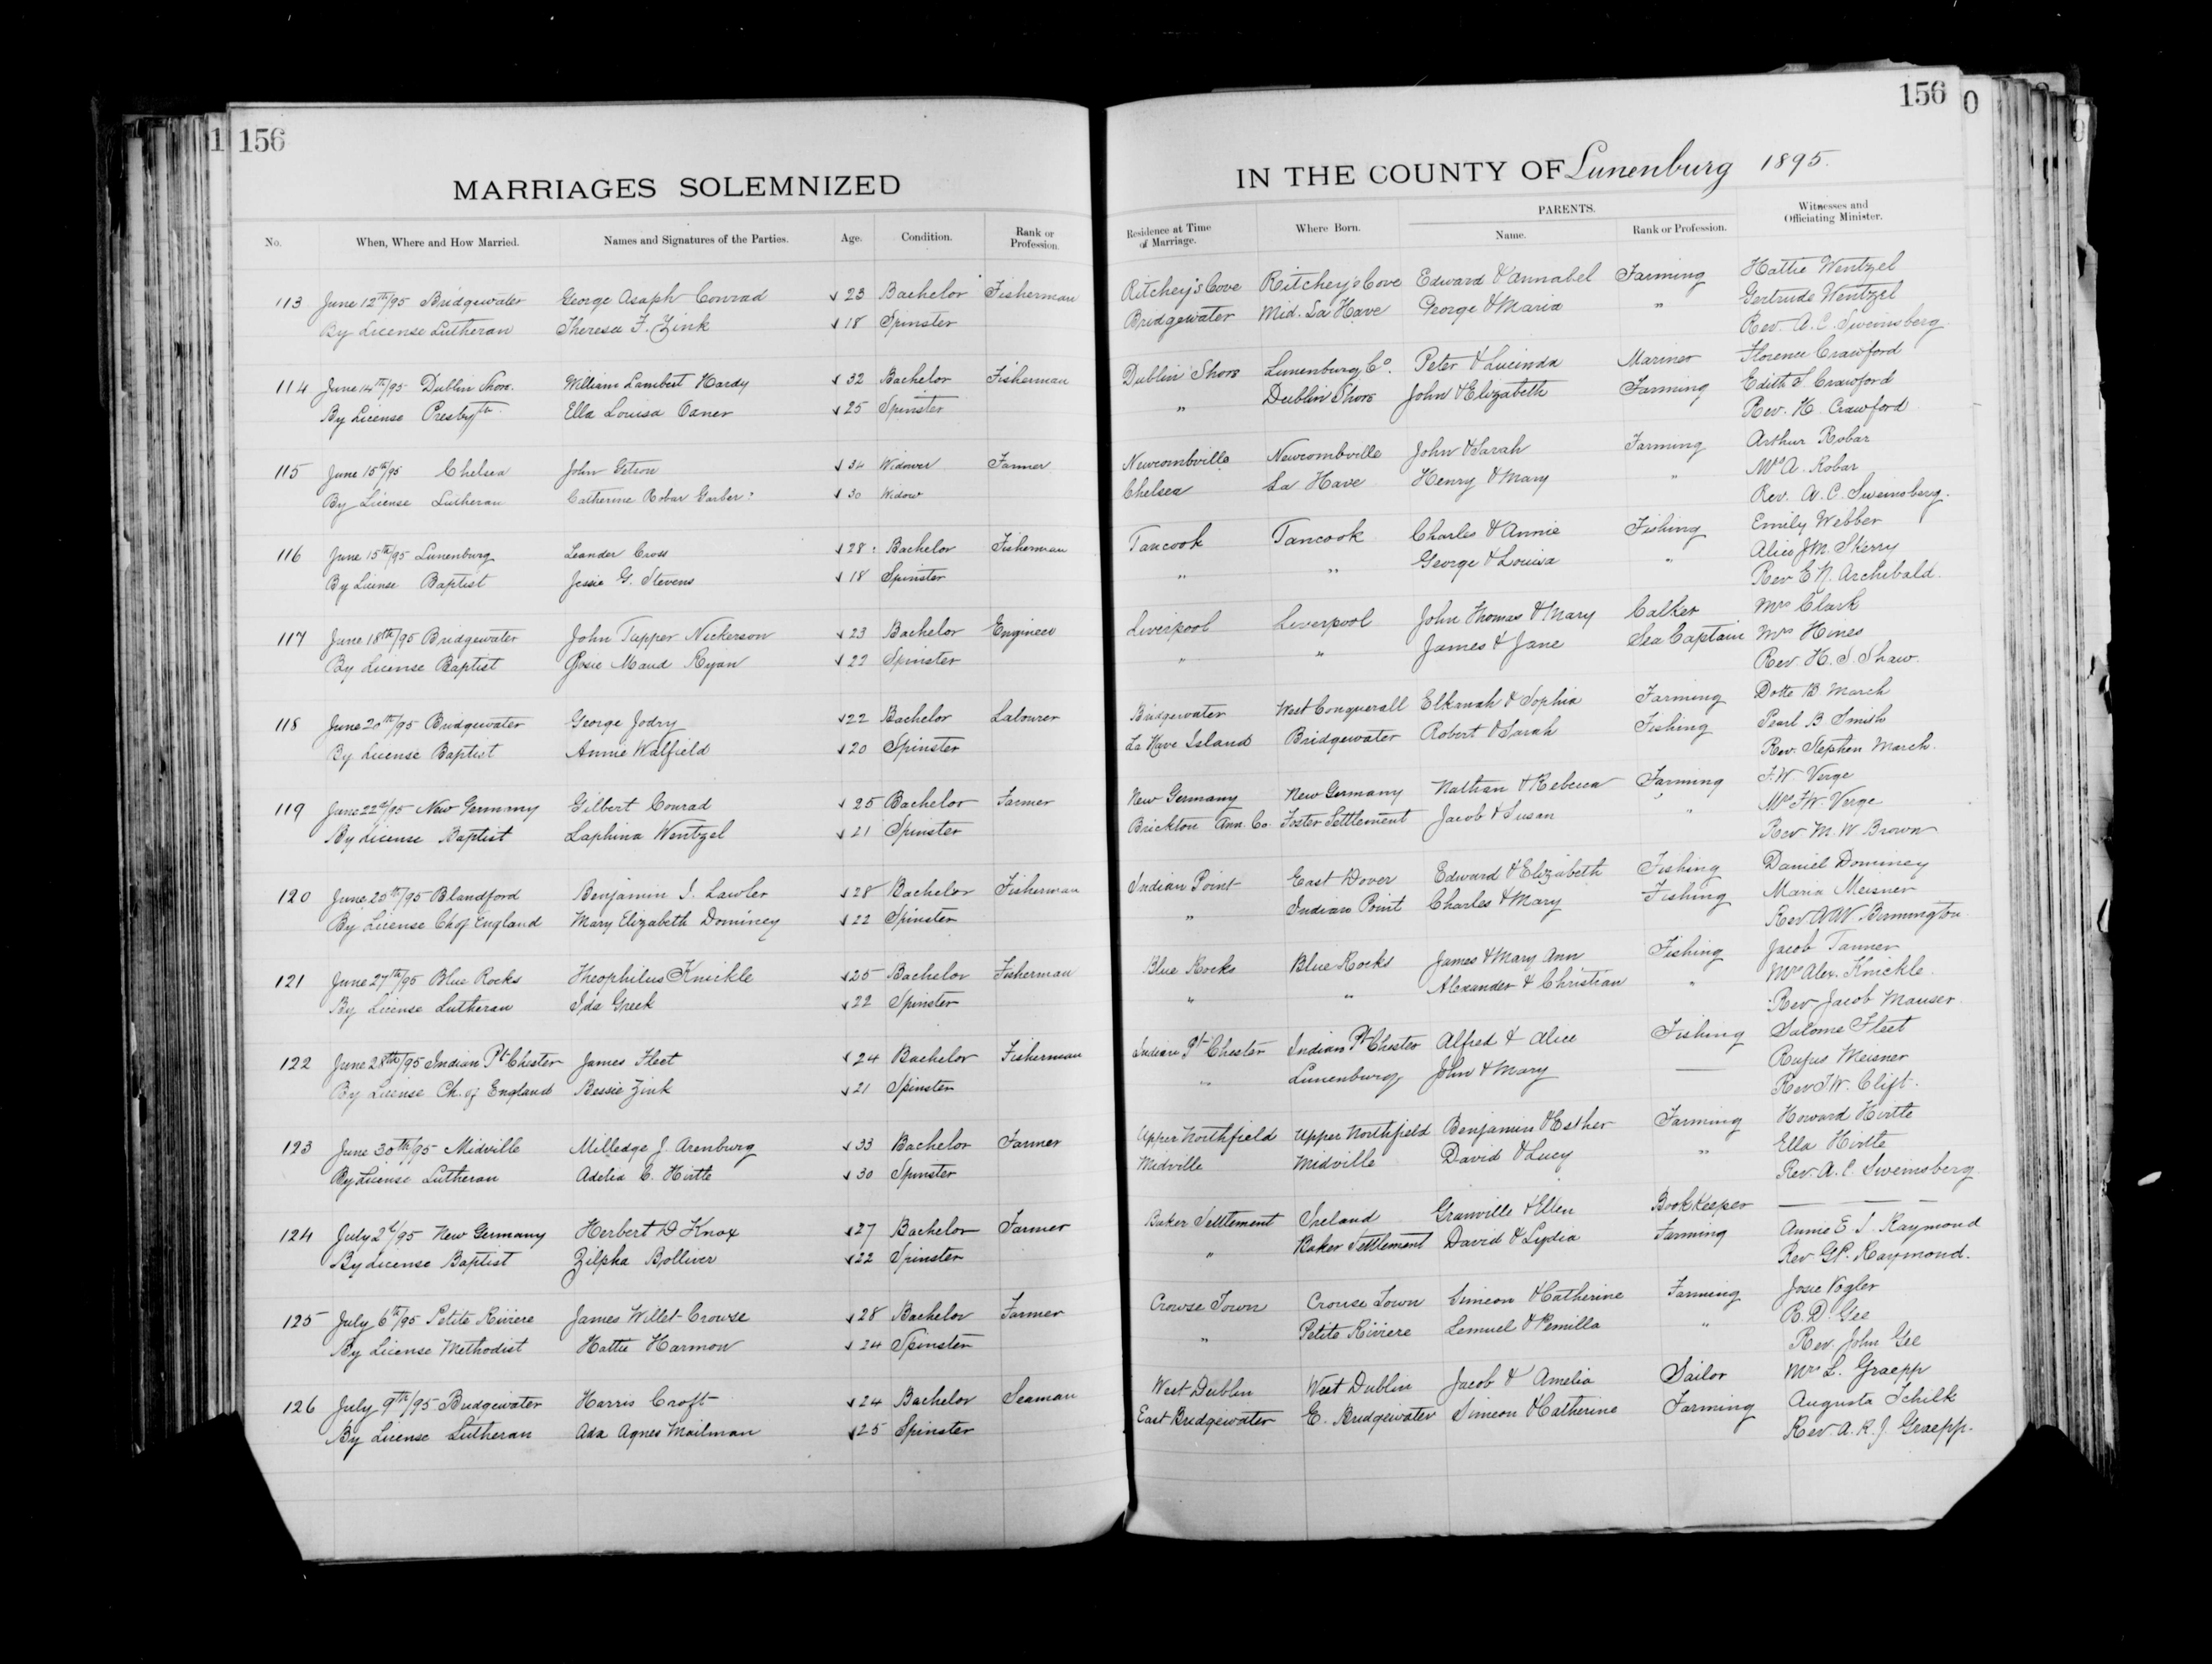 1 156
156 0
MARRIAGES SOLEMNIZED IN THE COUNTY OF Lunenburg 1895.
No. When, Where and How Married. Names and Signatures of the Parties. Age. Condition. Rank or Profession. Residence at Time of Marriage. Where Born. PARENTS. Name. Rank or Profession. Witnesses and Officiating Minister.
113 June 12th/95 Bridgewater George Asaph Conrad 23 Bachelor Fisherman Ritchey's Cove Ritchey's Cove Edward & Annabel Farming Hattie Wentzel
By License Lutheran Theresa F. Zink 18 Spinster Bridgewater Mid. La Have George & Maria " Gertrude Wentzel
Rev. A. C. Sweinsberg
114 June 14th/95 Dublin Shore. William Lambert Hardy 32 Bachelor Fisherman Dublin Shore Lunenburg Co. Peter & Lucinda Mariner Florence Crawford
By License Presbytn. Ella Louisa Oxner 25 Spinster " Dublin Shore John & Elizabeth Farming Edith S Crawford
Rev. H. Crawford
115 June 15th/95 Chelsea John Getson 34 Widower Farmer Newcombville Newcombville John & Sarah Farming Arthur Robar
By License Lutheran Catherine Robar Garber 30 Widow Chelsea La Have Henry & Mary " Mrs A. Robar
Rev. A. C. Sweinsberg.
116 June 15th/95 Lunenburg Leander Cross 28 Bachelor Fisherman Tancook Tancook Charles & Annie Fishing Emily Webber
By License Baptist Jessie G. Stevens 18 Spinster " " George & Louisa " Alice J M. Skerry
Rev E N. Archibald.
117 June 18th/95 Bridgewater John Tupper Nickerson 23 Bachelor Engineer Liverpool Liverpool John Thomas & Mary Calker Mrs Clark
By License Baptist Rosie Maud Ryan 22 Spinster " " James & Jane Sea Captain Mrs Hines
Rev. H. S. Shaw.
118 June 20th/95 Bridgewater George Jodry 22 Bachelor Labourer Bridgewater West Conquerall Elkanah & Sophia Farming Dotte B. March
By License Baptist Annie Walfield 20 Spinster La Have Island Bridgewater Robert & Sarah Fishing Pearl B. Smith
Rev. Stephen March.
119 June 22d/95 New Germany Gilbert Conrad 25 Bachelor Farmer New Germany New Germany Nathan & Rebecca Farming F. W. Verge
By License Baptist Laphina Wentzel 21 Spinster Brickton Ann. Co. Foster Settlement Jacob & Susan " Mrs F.W. Verge
Rev M. W. Brown
120 June 25th/95 Blandford Benjamin I. Lawler 28 Bachelor Fisherman Indian Point East Dover Edward & Elizabeth Fishing Daniel Dominey
By License Ch of England Mary Elizabeth Dominey 22 Spinster " Indian Point Charles & Mary Fishing Maria Meisner
Rev
121 June 27th/95 Blue Rocks Theophilus Knickle 25 Bachelor Fisherman Blue Rocks Blue Rocks James & Mary Ann Fishing Jacob Tanner
By License Lutheran Ida Greek 22 Spinster " " Alexander & Christian " Mrs Alex. Knickle.
Rev Jacob Mauser.
122 June 28th/95 Indian Pt Chester James Fleet 24 Bachelor Fisherman Indian Pt Chester Indian Pt Chester Alfred & Alice Fishing Salome Fleet
By License Ch. of England Bessie Zink 21 Spinster " Lunenburg John & Mary — Rufus Meisner
Rev T W. Clift.
123 June 30th/95 Midville Milledge J Arenburg 33 Bachelor Farmer Upper Northfield Upper Northfield Benjamin & Esther Farming Howard Hirtle
By License Lutheran Adelia C. Hirtle 30 Spinster Midville Midville David & Lucy " Ella Hirtle
Rev. A. C. Sweinsberg
124 July 2d/95 New Germany Herbert D Knox 27 Bachelor Farmer Baker Settlement Ireland Granville & Ellen Bookkeeper — — —
By License Baptist Zilpha Bolliver 22 Spinster " Baker Settlement David & Lydia Farming Annie E. S. Raymond
Rev G P. Raymond.
125 July 6th/95 Petite Riviere James Willet Crowse 28 Bachelor Farmer Crowse Town Crouse Town Simeon & Catherine Farming Josie Vogler
By License Methodist Hattie Harmon 24 Spinster " Petite Riviere Lemuel & Pemilla " R. D. Gee
Rev. John Gee
126 July 9th/95 Bridgewater Harris Croft 24 Bachelor Seaman West Dublin West Dublin Jacob & Amelia Sailor Mrs L. Graepp
By License Lutheran Ada Agnes Mailman 25 Spinster East Bridgewater E. Bridgewater Simeon & Catherine Farming Augusta Schilk
Rev. A. R. J. Graepp.